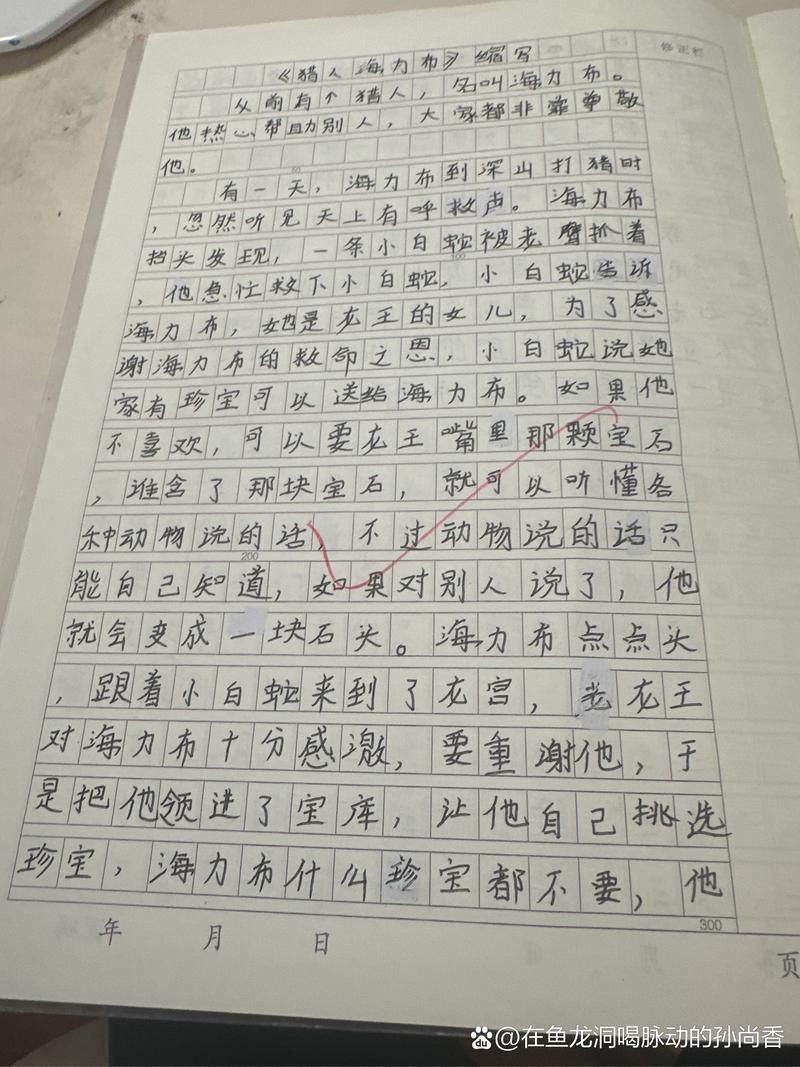 《猎人海力布》缩写
修正栏
从前有个猎人，名叫海力布。
他热心帮助别人，大家都非常尊敬
他。
有一天，海力布到深山打猎时
，忽然听见天上有呼救声。海力布
抬头发现，一条小白蛇被老鹰抓着
，他急忙救下小白蛇，小白蛇告诉
海力布，她是龙王的女儿，为了感
谢海力布的救命之恩，小白蛇说她
家有珍宝可以送给海力布。如果他
不喜欢，可以要龙王嘴里那颗宝石
，谁含了那块宝石，就可以听懂各
种动物说的话，不过动物说的话只
200
能自己知道，如果对别人说了，他
就会变成一块石头。海力布点点头
，跟着小白蛇来到了龙宫，老龙王
对海力布十分感激，要重谢他，于
是把他领进了宝库，让他自己挑选
珍宝，海力布什么珍宝都不要，他
300
年 月 日
页
@在鱼龙洞喝脉动的孙尚香